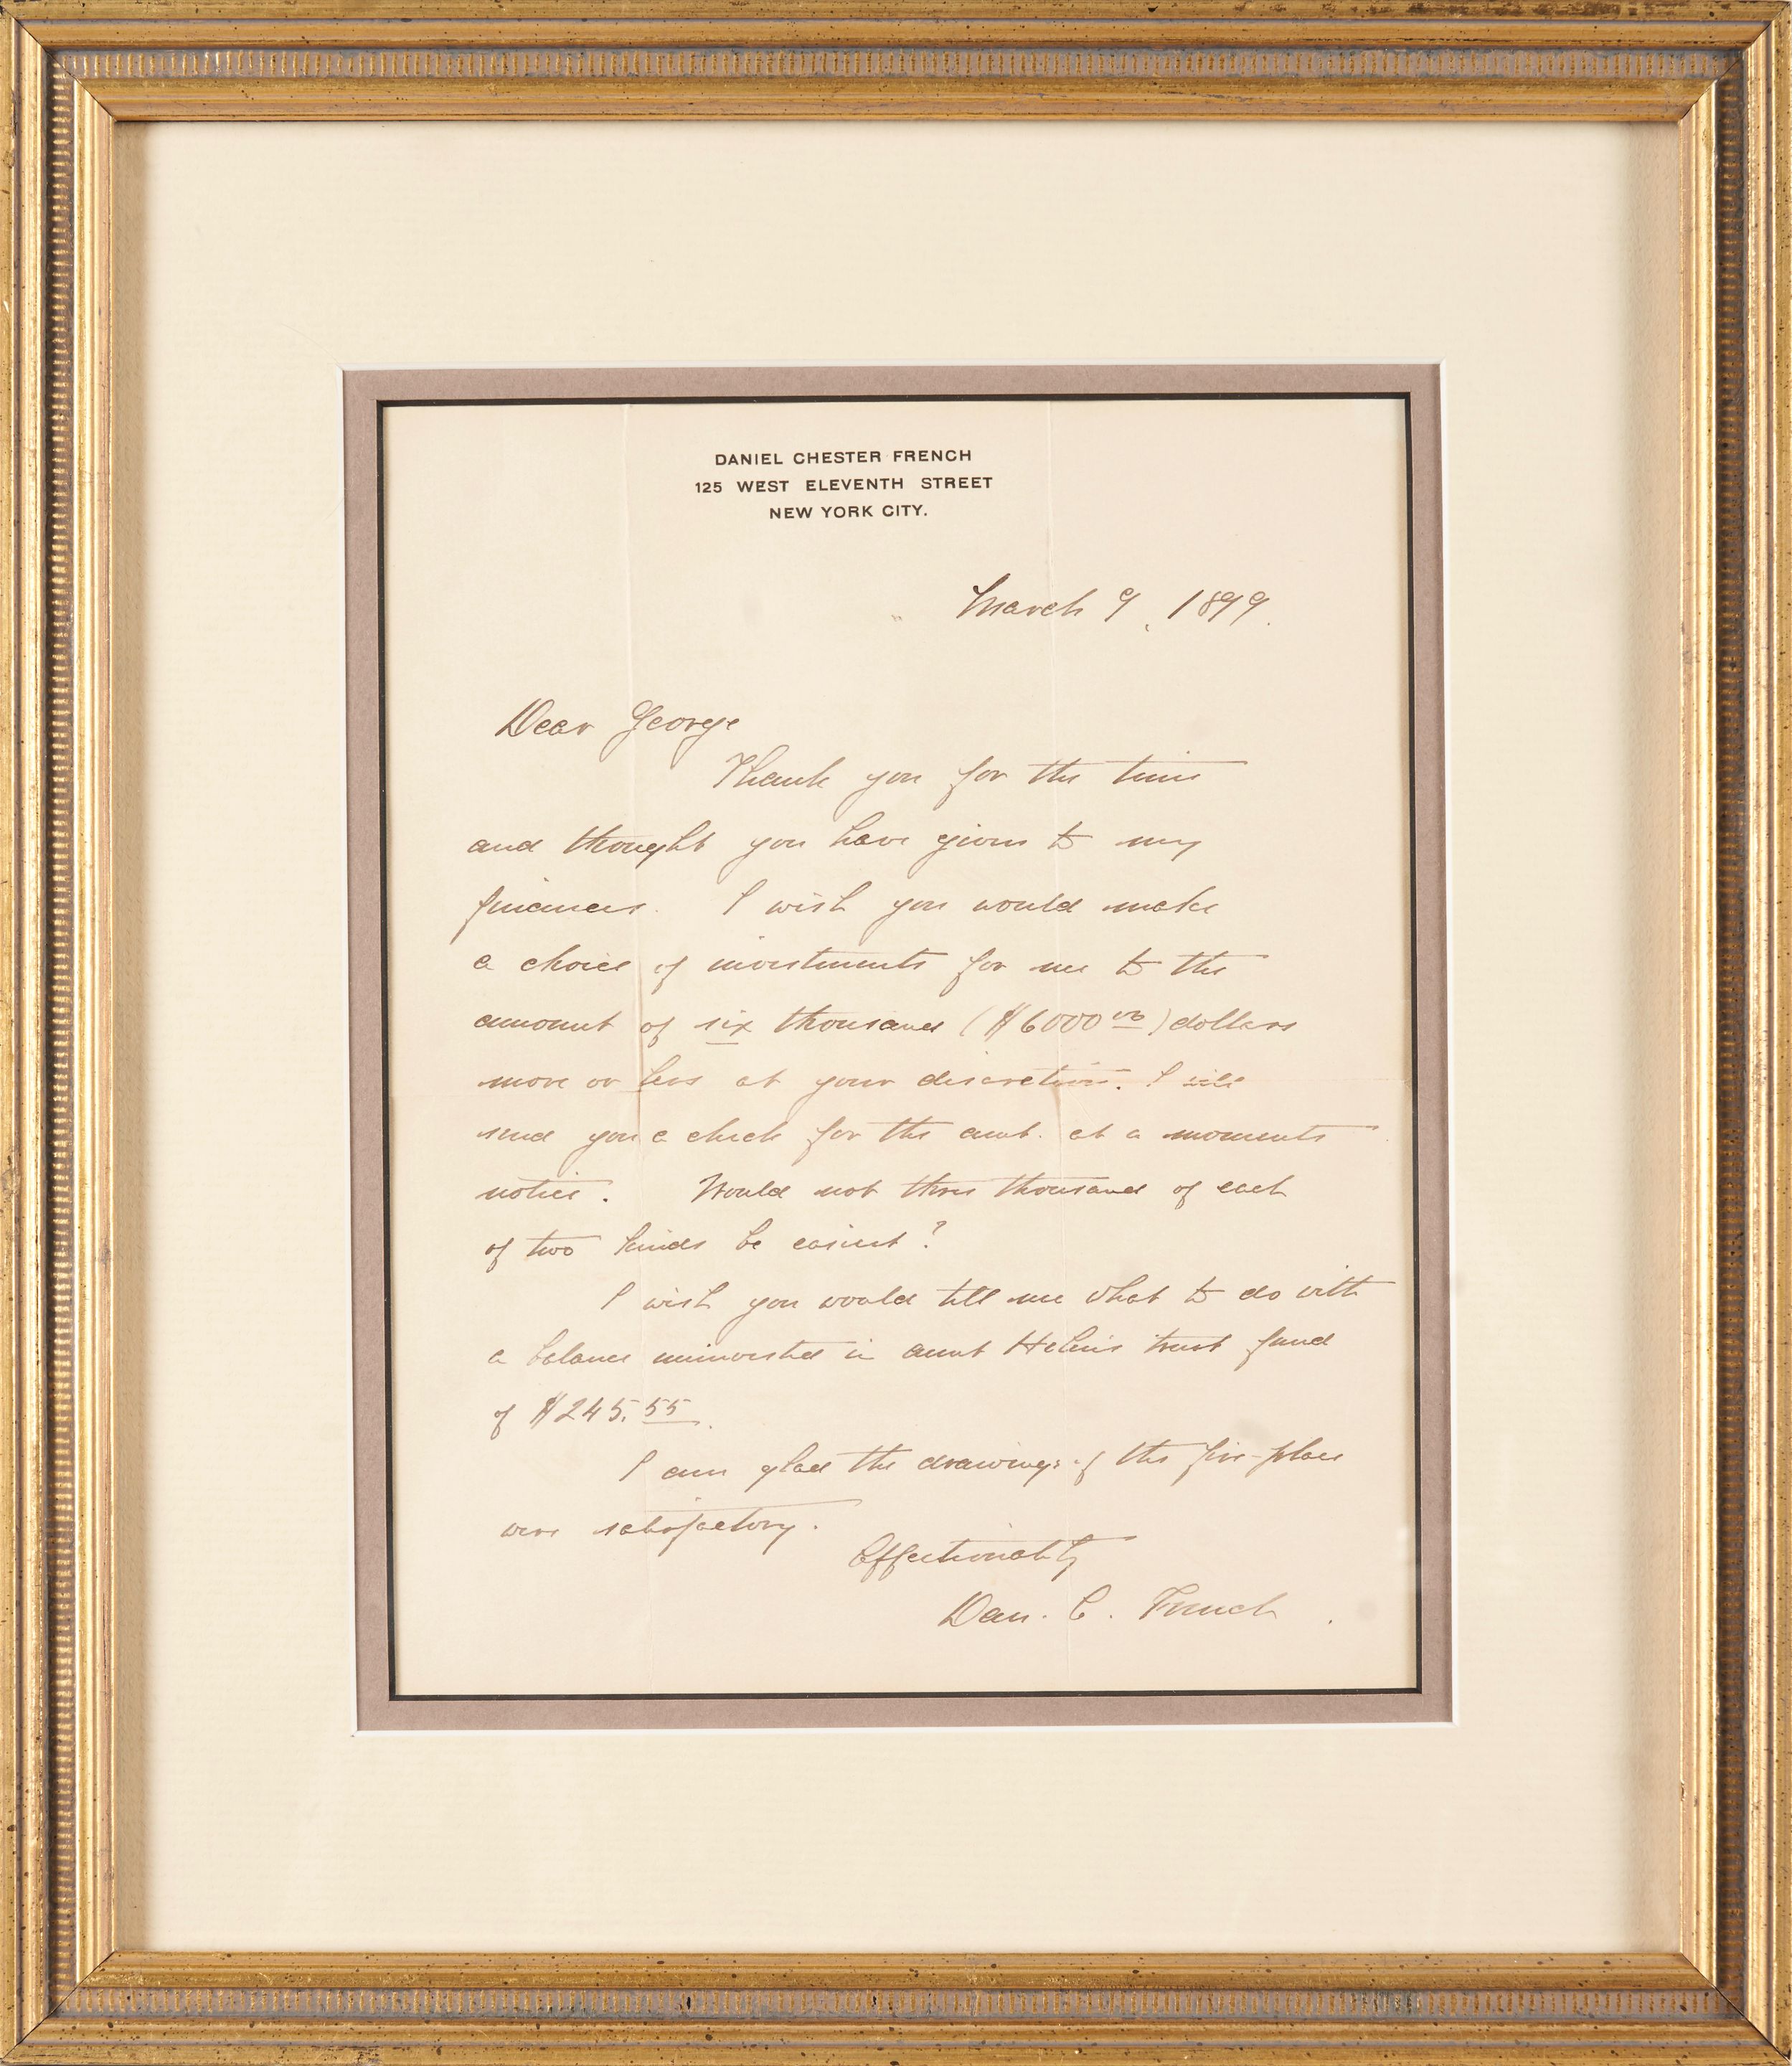 DANIEL CHESTER FRENCH
125 WEST ELEVENTH STREET
NEW YORK CITY.
March 9, 1899.
Dear George
Thank you for the time
and thought you have given to my
finances. I wish you would make
a choice of investments for me to the
amount of six thousand ($6000 00) dollars
more or less at your discretion. I will
send you a check for the amt. at a moments
notice. Would not three thousand of each
of two kinds be easiest?
I wish you would tell me what to do with
a balance uninvested in aunt Helen's trust fund
of $245.55.
I am glad the drawings of the fire-place
were satisfactory.
Affectionately
Dan. C. French.